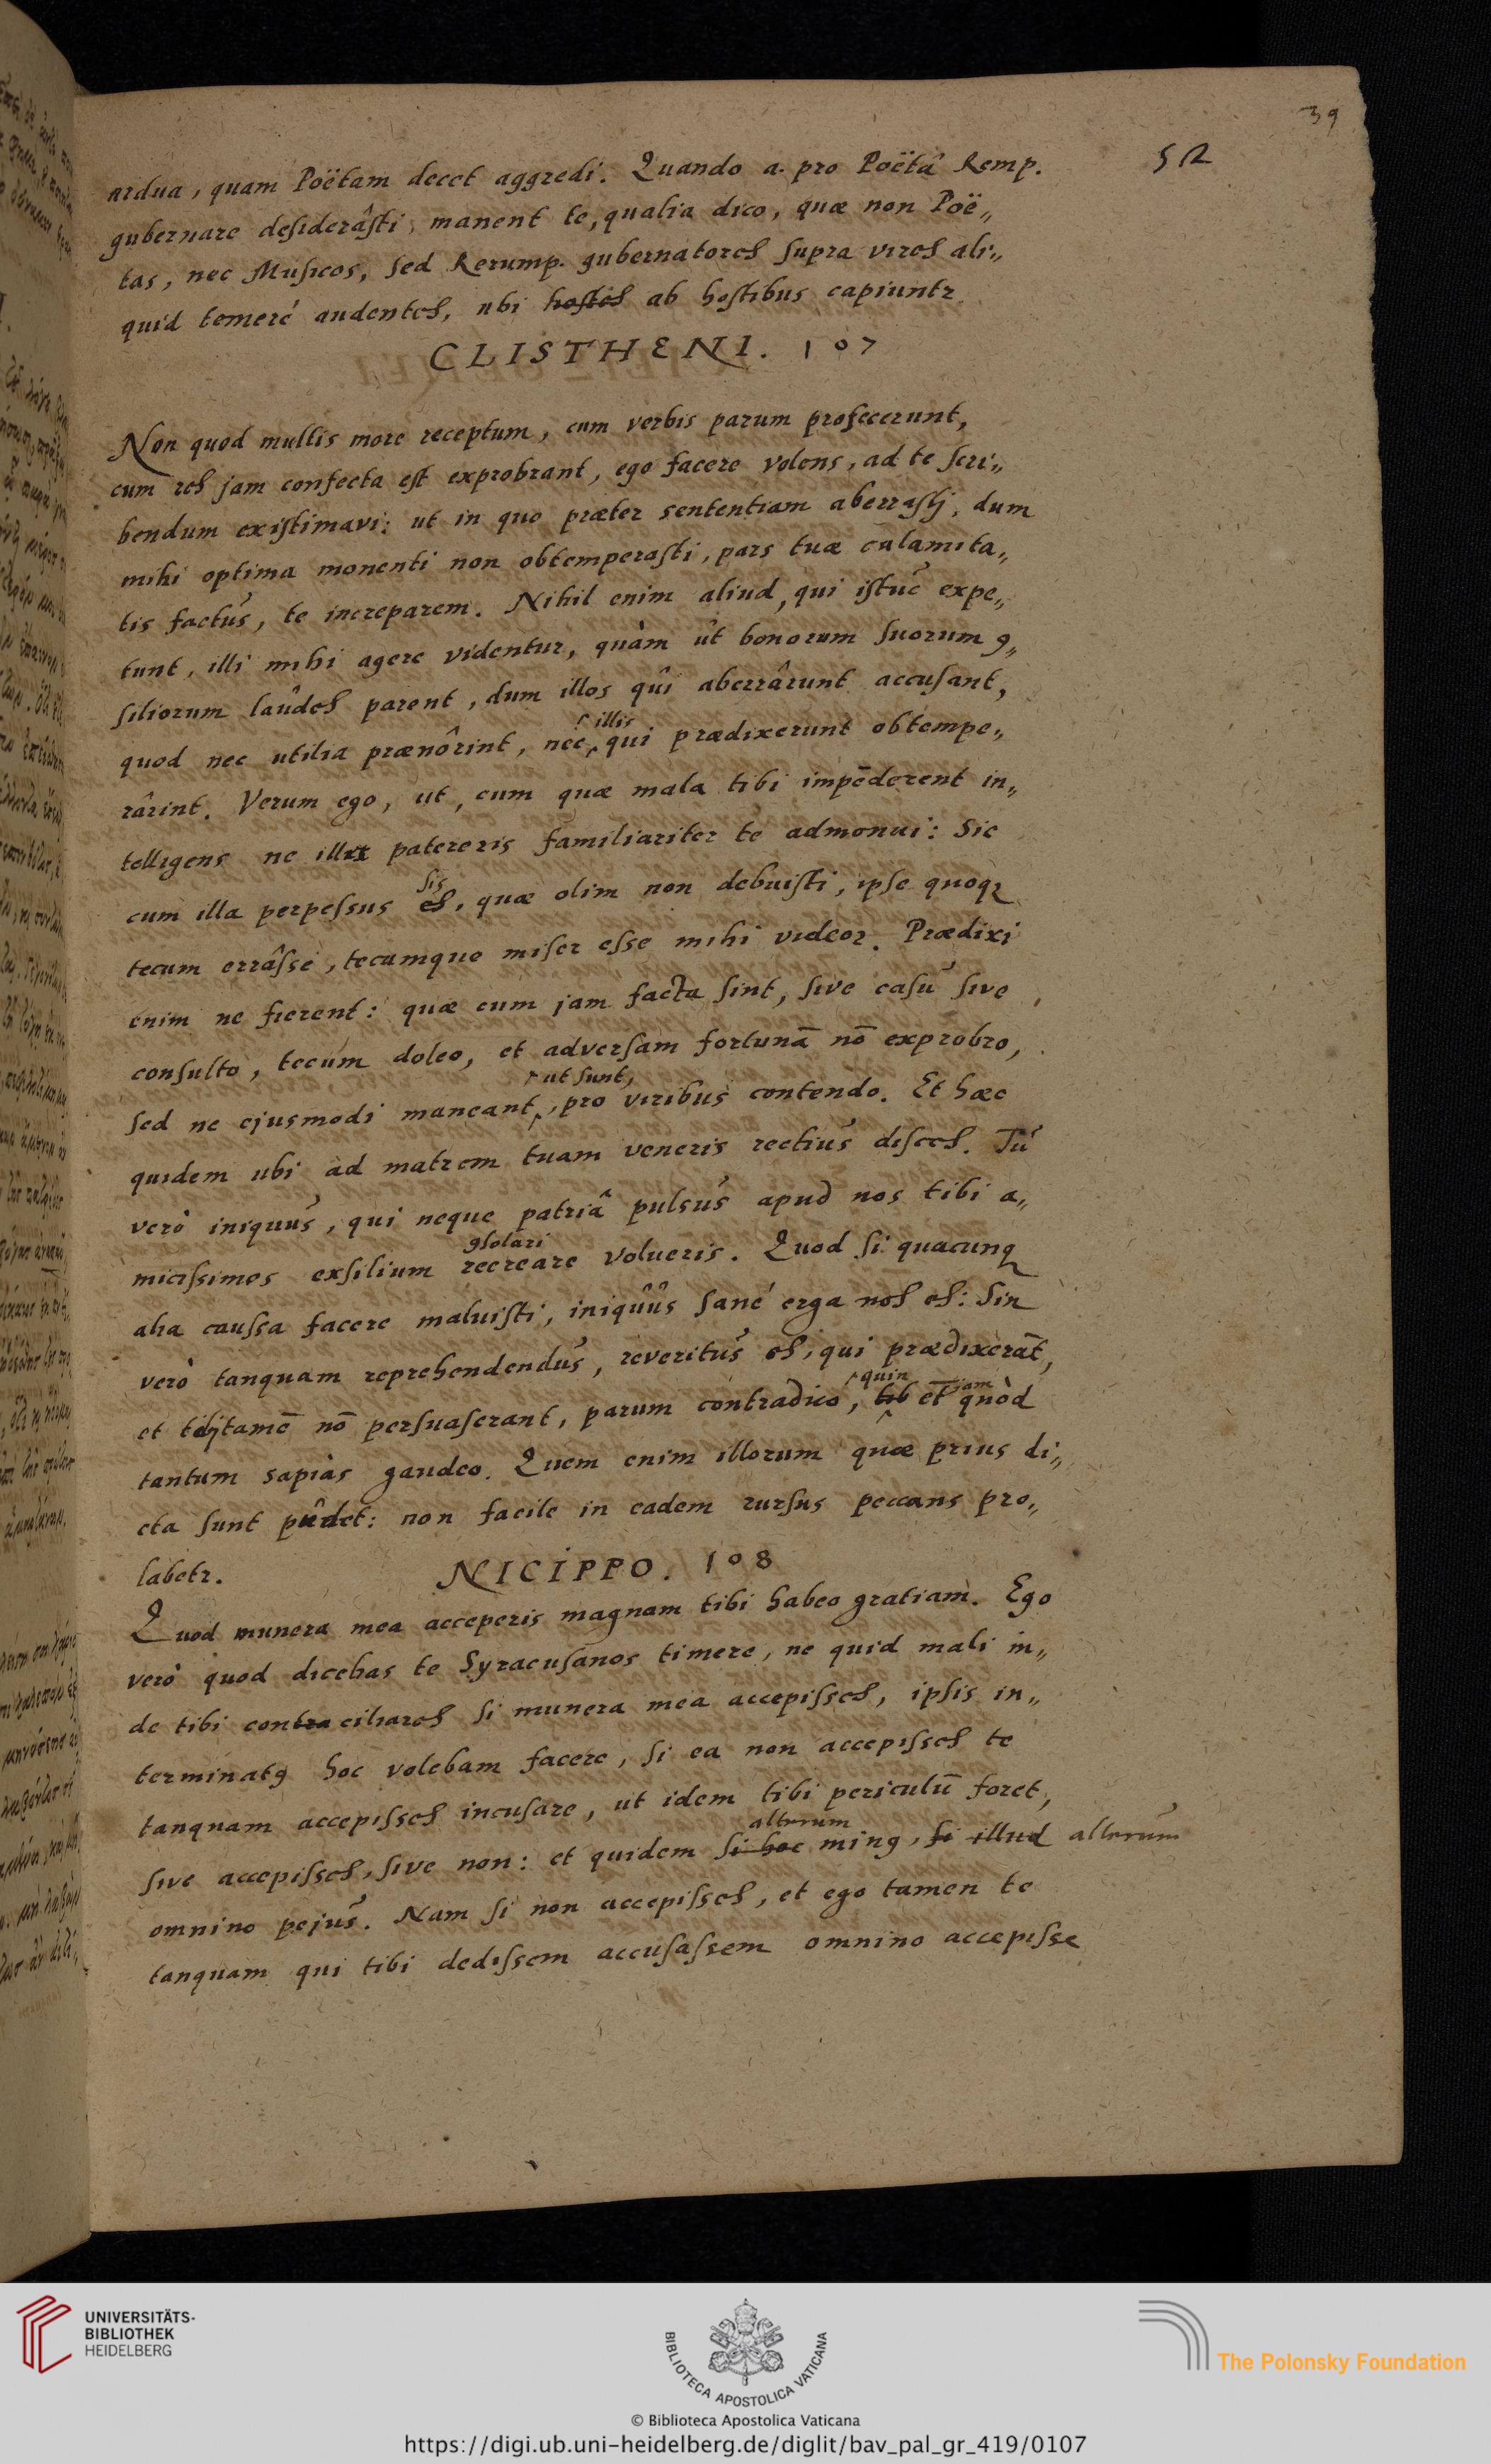 39
52
ardua, quam Poëtam decet aggredi. Quando a. pro Poëtâ Remp.
gubernare desiderâsti, manent te, qualia dico, quæ non Poë„
tas, nec Musicos, sed Rerump. gubernatores supra vires ali„
quid temerè audentes, ubi hostes ab hostibus capiuntr.
CLISTHENI. 107
Non quod multis more receptum, cum verbis parum profecerunt,
cum res jam confecta est exprobrant, ego facere volens, ad te scri„
bendum existimavi: ut in quo præter sententiam aberrasti, dum
mihi optima monenti non obtemperasti, pars tuæ calamita„
tis factus, te increparem. Nihil enim aliud, qui istuc expe„
tunt, illi mihi agere videntur, quàm ut bonorum suorum 9„
siliorum laudes parent, dum illos qui aberrârunt accusant,
quod nec utilia prænôrint, nec illis qui prædixerunt obtempe„
rârint. Verum ego, ut, cum quæ mala tibi impēderent in„
telligens ne illa patereris familiariter te admonui: Sic
cum illa perpessus es sis, quæ olim non debuisti, ipse quoq
tecum errâsse, tecumque miser esse mihi videor. Prædixi
enim ne fierent: quæ cum jam facta sint, sive casu sive
consulto, tecum doleo, et adversam fortunā nō exprobro,
sed ne ejusmodi maneant ut sunt, pro viribus contendo. Et hæc
quidem ubi ad matrem tuam veneris rectius disces. Tu
verò iniquus, qui neque patriâ pulsus apud nos tibi a„
micissimos exsilium recreare 9solari volueris. Quod si quacunq
alia caussa facere maluisti, iniquus sanè erga nos es: Sin
verò tanquam reprehendendus, reveritus es, qui prædixerāt,
et tibi tamē nō persuaserant, parum contradico, tib quin etiam quòd
tantum sapias gaudeo. Quem enim illorum quæ prius di„
cta sunt pudet: non facile in eadem rursus peccans pro„
labetr.
NICIPPO. 108
Quod munera mea acceperis magnam tibi habeo gratiam. Ego
verò quod dicebas te Syracusanos timere, ne quid mali in„
de tibi contra ciliares si munera mea accepisses, ipsis in„
terminat9 hoc volebam facere, si ea non accepisses te
tanquam accepisses incusare, ut idem tibi periculū foret,
sive accepisses, sive non: et quidem si hoc alterum min9, si illud alterum
omnino pejus. Nam si non accepisses, et ego tamen te
tanquam qui tibi dedissem accusassem omnino accepisse
UNIVERSITÄTS-
BIBLIOTHEK
HEIDELBERG
BIBLIOTECA APOSTOLICA VATICANA
The Polonsky Foundation
© Biblioteca Apostolica Vaticana
https://digi.ub.uni-heidelberg.de/diglit/bav_pal_gr_419/0107